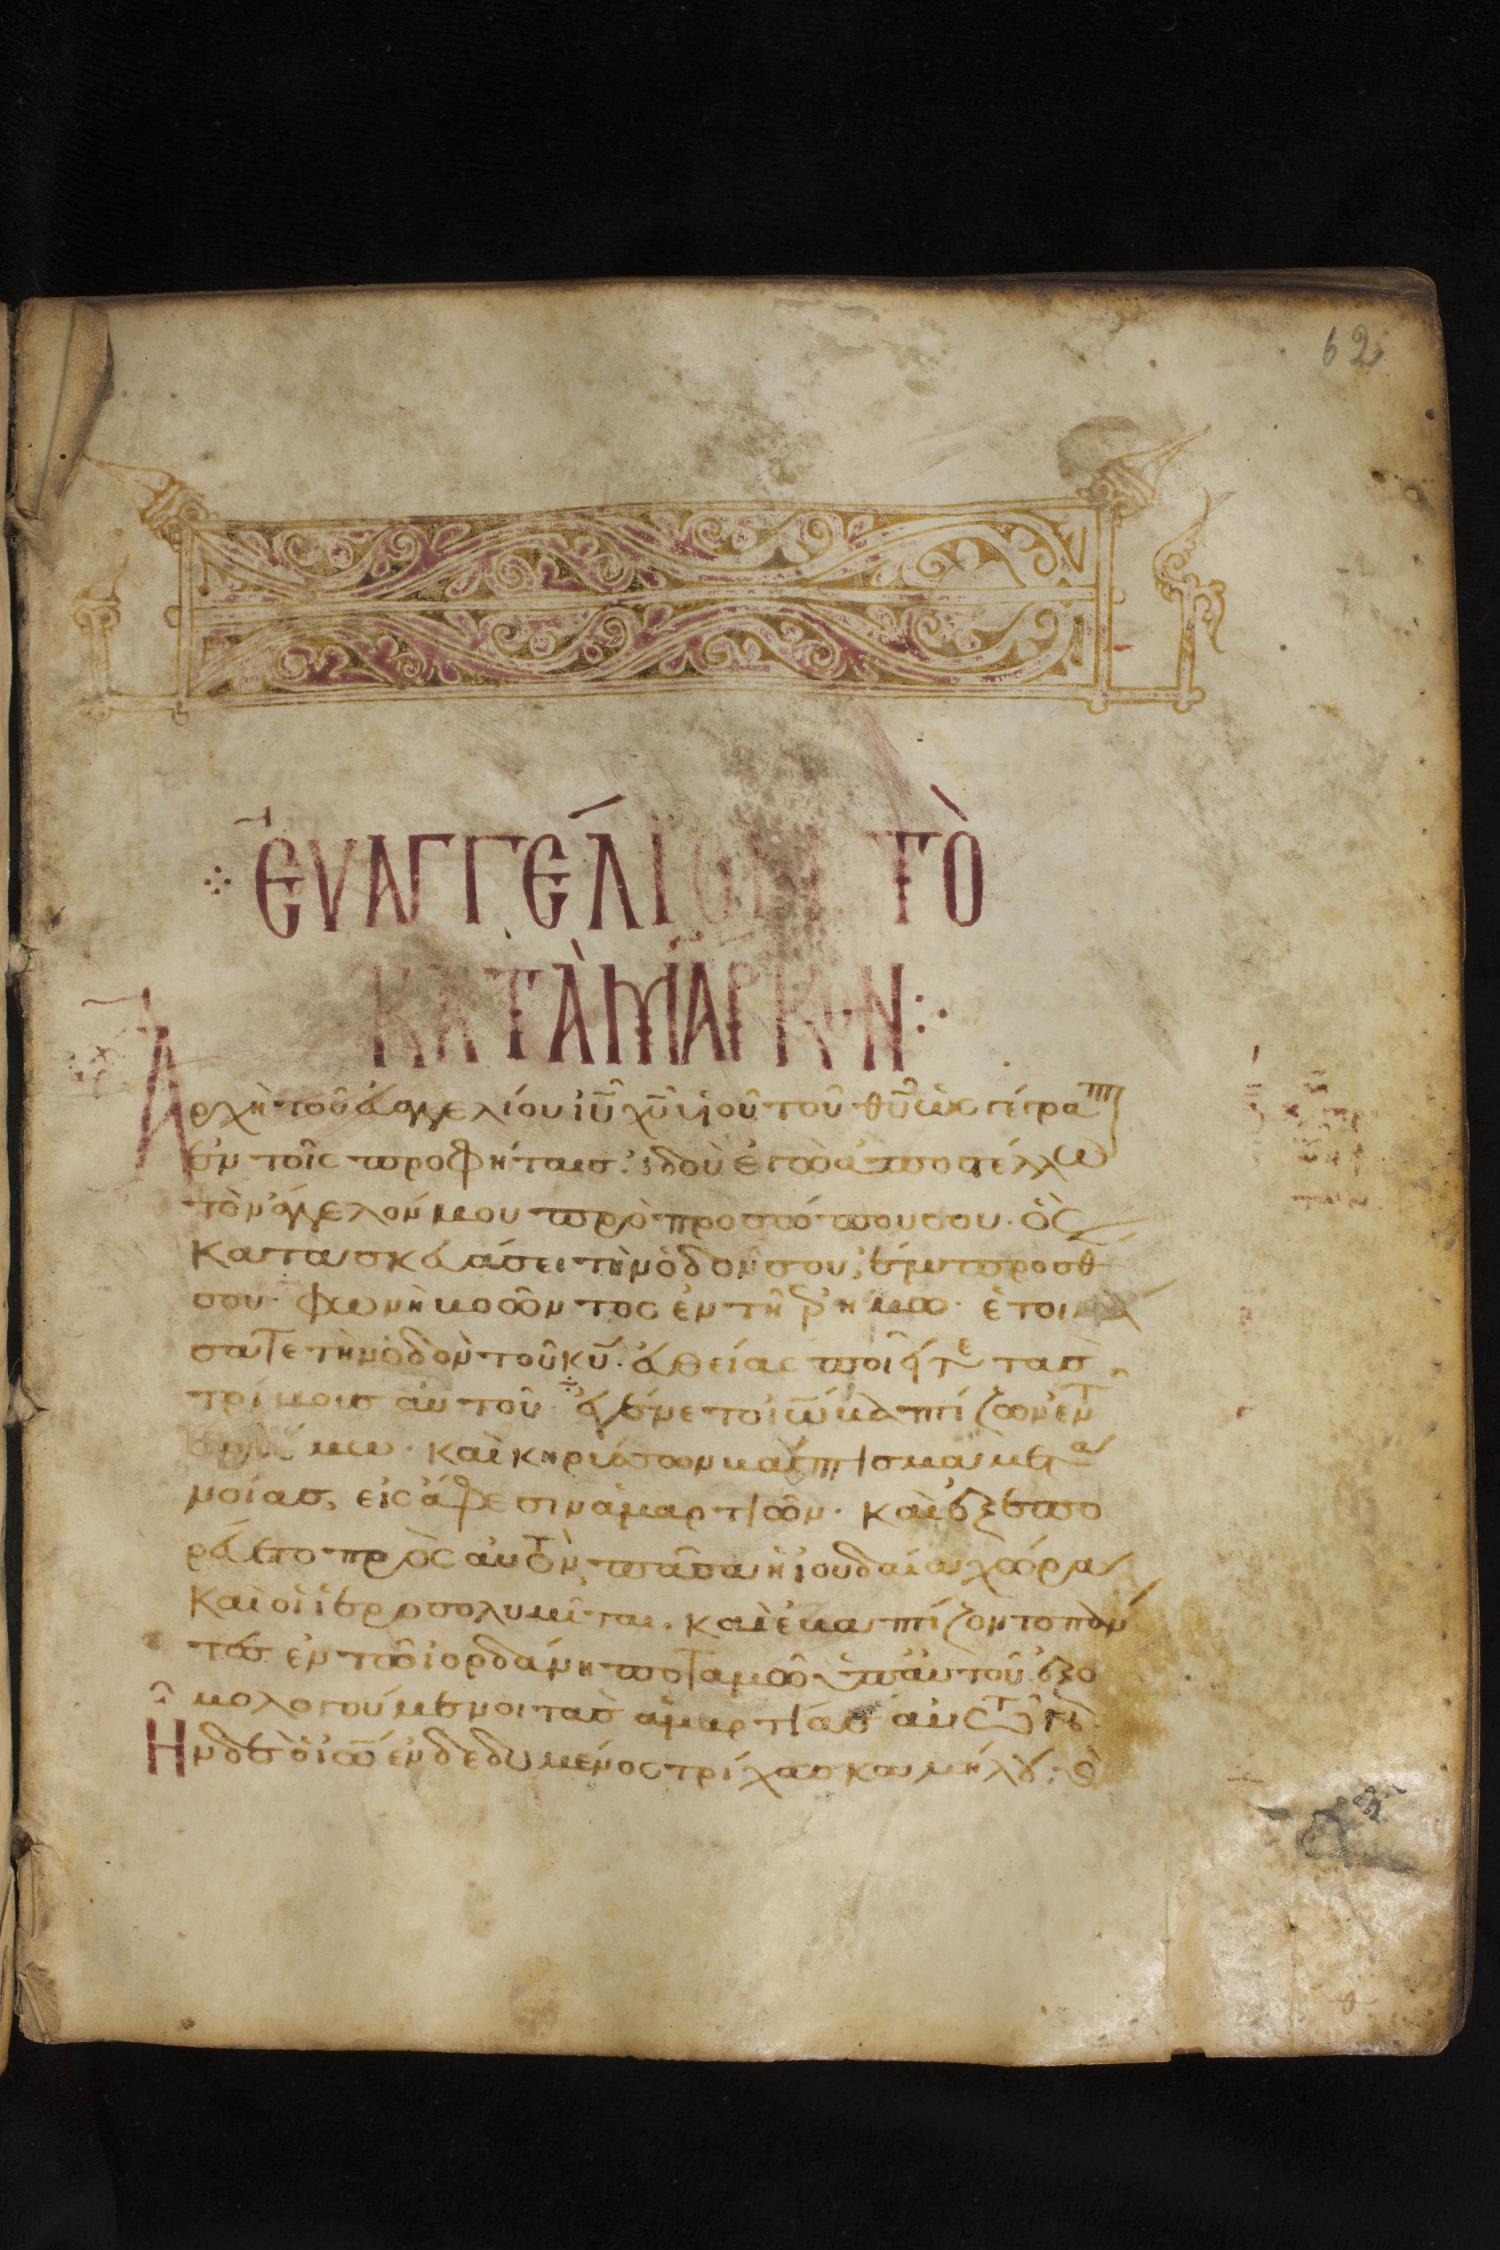 62
ἐυαγγέλιον τὸ
κατὰ μάρκον
Ἀρχὴ τοῦ ἐυαγγελίου ἰῦ χῦ ὑιοῦ τοῦ θῦ ὡς γέγραπτ
ἐν τοῖς προφήταισ· ἰδοὺ ἐγὼ ἀποστέλλω
τὸν ἄγγελόν μου πρὸ προσώπου σου· ὃς
κατασκευάσει τὴν ὁδόν σου, ἔμπροσθ
σου· φωνὴ βοῶντος ἐν τῆ ἐρήμω· ἑτοιμά
σατε τὴν ὁδὸν τοῦ κῦ· ἐυθείας ποιεῖτε τασ
τρίβουσ αὐτοῦ· ἐγένετο ἰω βαπτίζων ἐν τ
ἐρήμω· καὶ κηρύσσων βάπτισμα μετα
νοίασ, εἰς ἄφεσιν ἁμαρτιῶν· καὶ ἐξεπο
ρέυετο πρὸς αὐτὸν, πᾶσα ἡ ἰουδαία χώρα
καὶ οἱ ἱεροσολυμῖται, καὶ ἐβαπτίζοντο πάν
τεσ ἐν τῶ ἰορδάνη ποταμῶ ὑπ' ἀυτοῦ ἐξο
μολογούμενοι τασ ἁμαρτίασ ἀυτῶν
Ην δὲ ὁ ἰω ἐνδεδυμένος τρίχασ καμήλου,